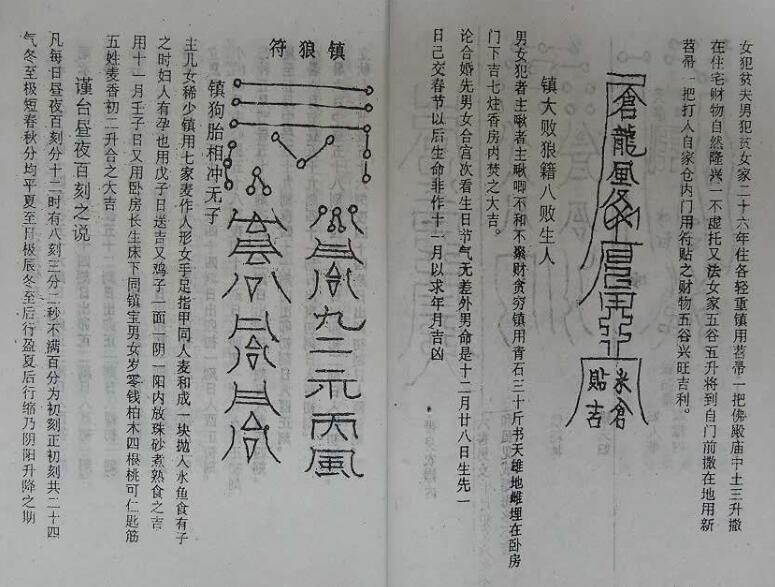 女犯贫夫男犯贫女家二十六年住各轻重镇用苕帚一把佛殿庙中土三升撒
在住宅财物自然隆兴一不虚托又法女家五谷五升将到自门前撒在地用新
苕帚一把打入自家仓内门用符贴之财物五谷兴旺吉利。
米倉
貼吉
镇大败狼籍八败生人
男女犯者主啾者主啾唧不和不聚财贪穷镇用青石三十斤书天雄地雌埋在卧房
门下吉七炷香房内焚之大吉。
论合婚先男女合宫次看生日节气无差外男命是十二月廿八日生先一
日己交春节以后生命非作十一月以求年月吉凶
镇狼符
镇狗胎相冲无子
主儿女稀少镇用七家麦作人形女手足指甲同人麦和成一块抛人水鱼食有子
之时妇人有孕也用戊子日送吉又鸡子一面一阴一阳内放珠砂煮熟食之吉
用十一月壬子日又用卧房长生床下同镇宝男女岁零钱柏木四根桃可仁匙筋
五姓麦香初二升合之大吉
谨台昼夜百刻之说
凡每日昼夜百刻分十二时有八刻三分二秒不满百分为初刻正初刻共二十四
气冬至极短春秋分均平夏至日极辰冬至后行盈夏后行缩乃阴阳升降之期